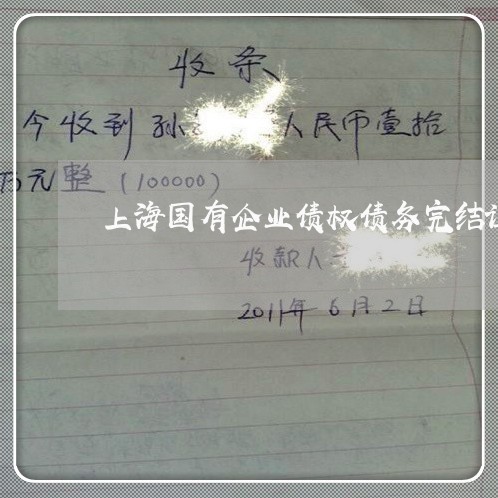 收条
今收到孙 人民币壹拾
万元整(100000)
上海国有企业债权债务完结证
收款人
2011年6月2日